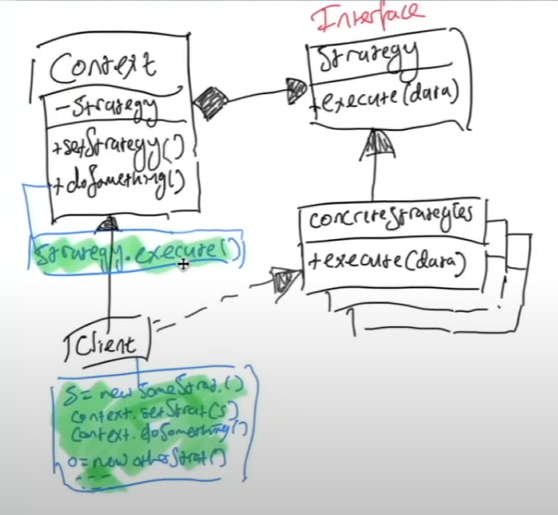 Interface
Context
- Strategy
+ setStrategy()
+ doSomething()
strategy.execute()
Strategy
+ execute(data)
concreteStrategies
+ execute(data)
Client
S = new SomeStrat.()
Context.setStrat(s)
Context.doSomething()
o = new otherStrat()
----